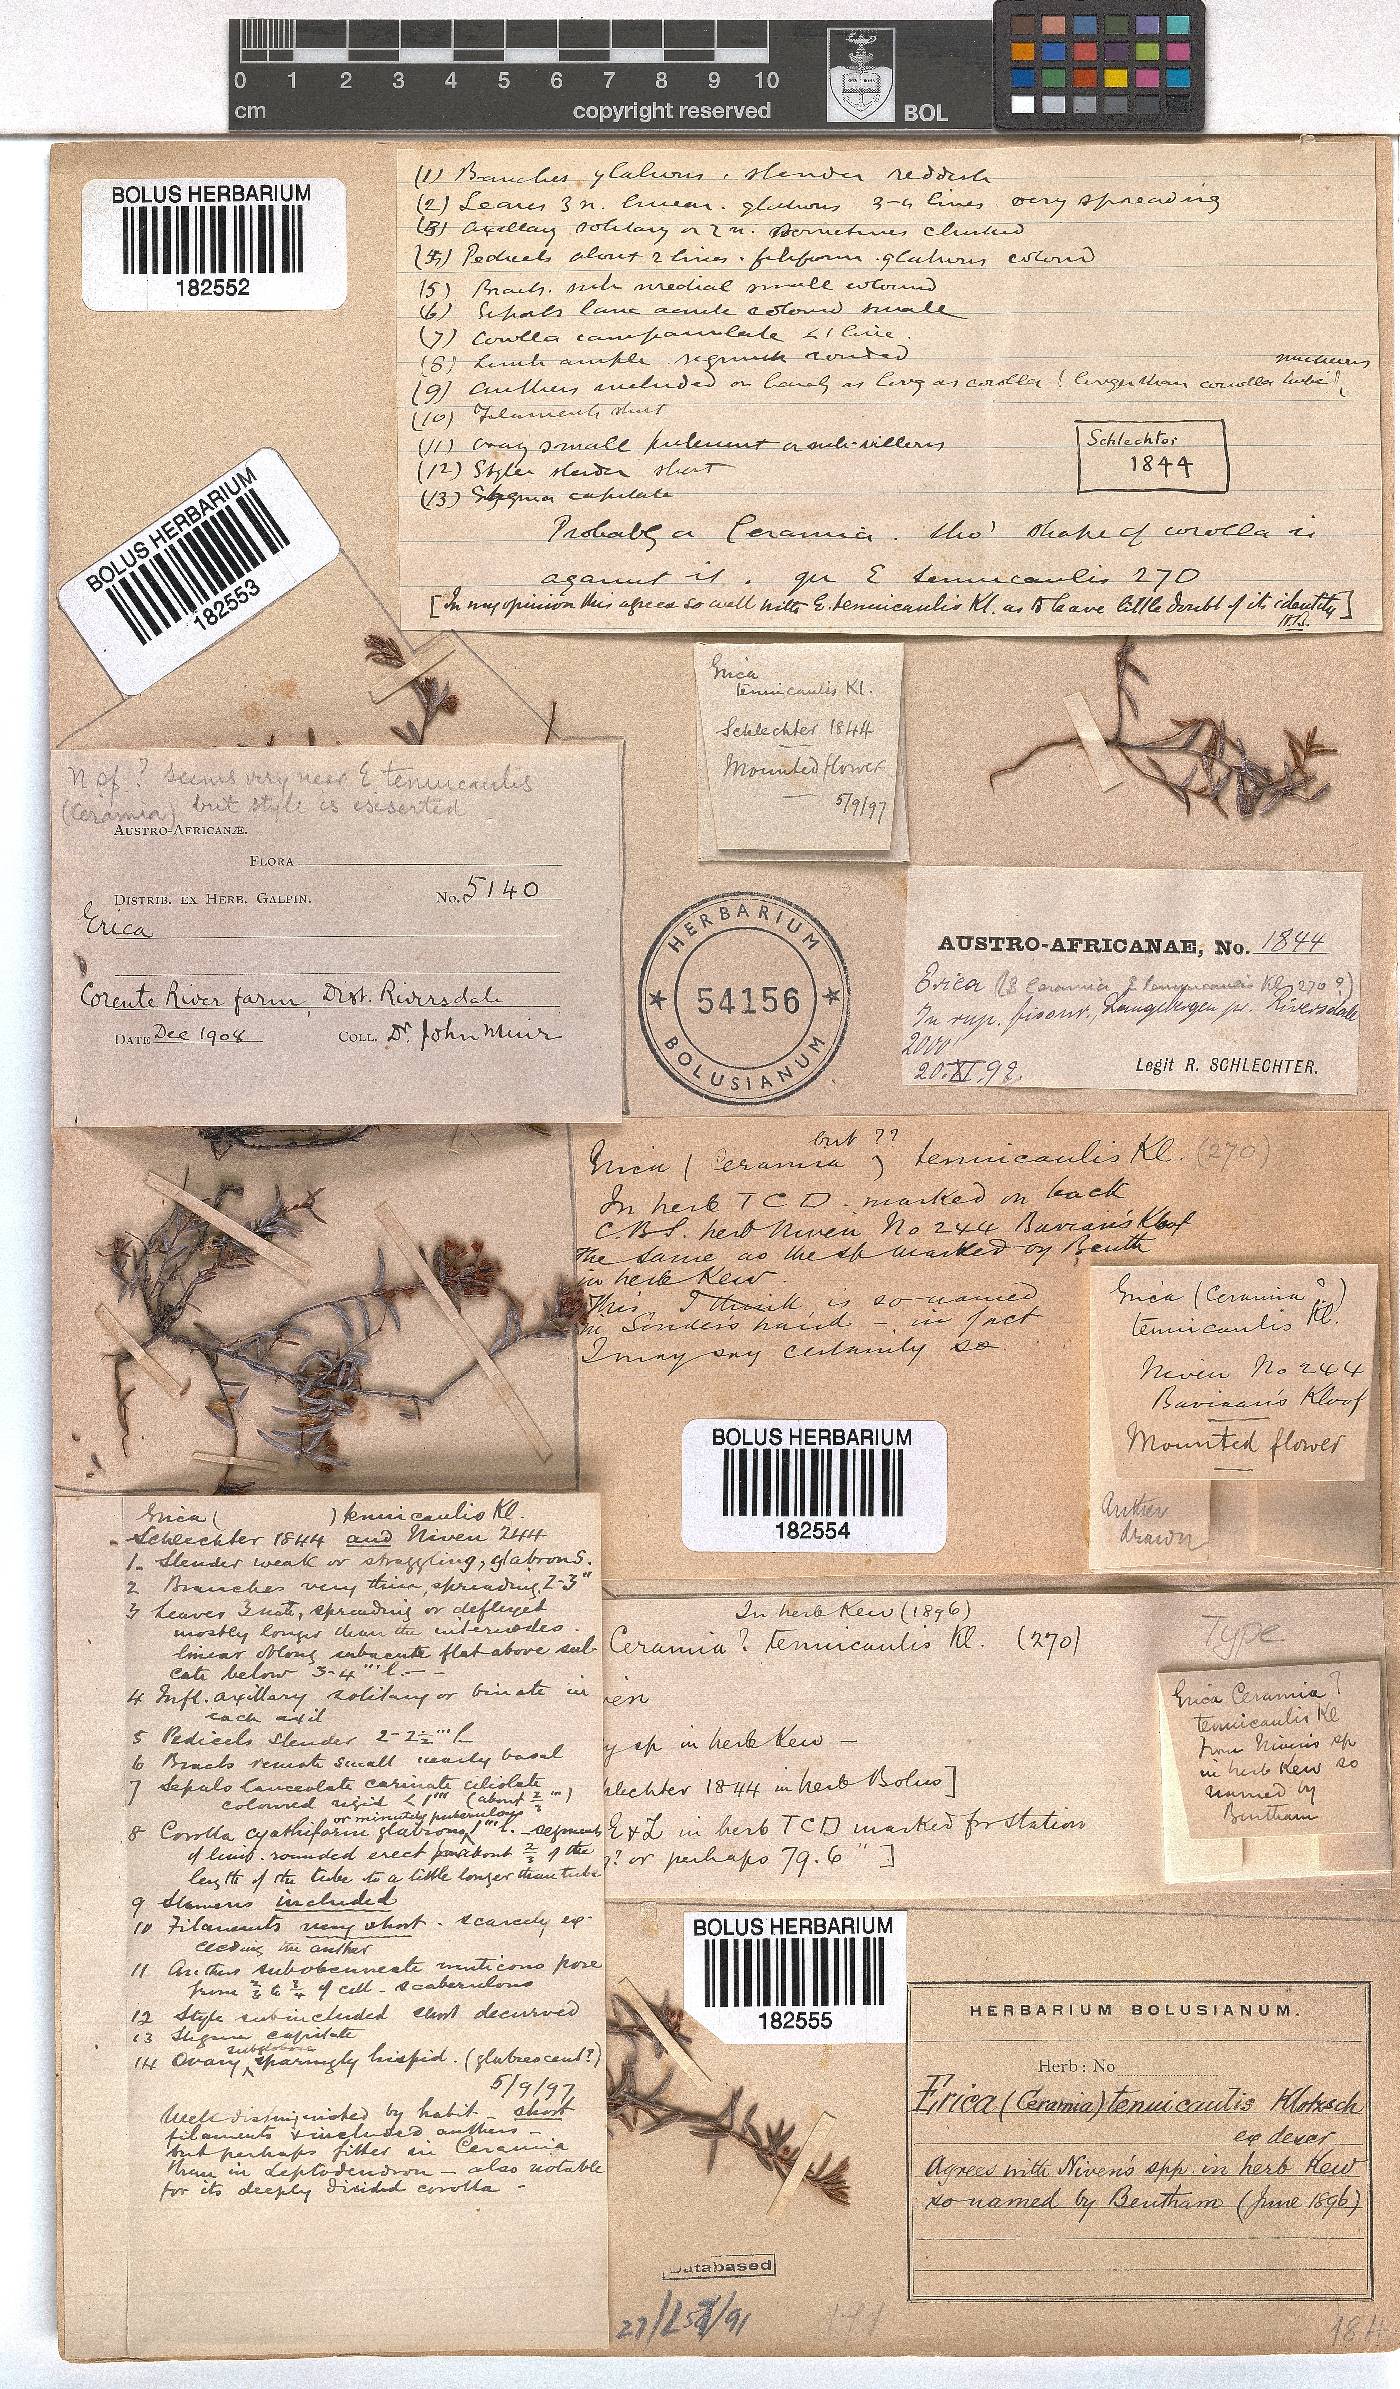 0 1 2 3 4 5 6 7 8 9 10
cm
copyright reserved
BOL
BOLUS HERBARIUM
182552
(1) Branches glabrous. slender reddish
(2) Leaves 3 n. linear. glabrous 3-4 lines very spreading
(3) axillary solitary or 2 n. sometimes clustered
(4) Pedicels about 2 lines. filiform. glabrous colour'd
(5) Bracts. sub medial small coloured
(6) Sepals lanc acute coloured small
(7) Corolla campanulate <1 line
(8) Limb ample segments rounded
(9) Anthers included or barely as long as corolla! longer than corolla tube! muticous
(10) Filaments short
(11) Ovary small pubescent or sub-villous
(12) Style slender short
(13) Stigma capitate
Schlechter
1844
Probably a Ceramia. tho' shape of corolla is
against it. qu E tenuicaulis 270
[In my opinion this agrees so well with E. tenuicaulis Kl. as to leave little doubt of its identity]
H.B.
BOLUS HERBARIUM
182553
Erica
tenuicaulis Kl.
Schlechter 1844
Mounted flower
5/9/97
N sp.? seems very near E tenuicaulis
(Ceramia) but style is exserted
AUSTRO-AFRICANÆ.
FLORA
DISTRIB. EX HERB. GALPIN. No. 5140
Erica
Corente River farm, Dist. Riversdale
DATE Dec 1908 COLL. Dr. John Muir
HERBARIUM
54156
BOLUSIANUM
AUSTRO-AFRICANAE, No. 1844
Erica (§ Ceramia E tenuicaulis Kl. 270?)
In rup. fissur., Langebergen pr. Riversdale
2000'
20.XI.92.
Legit R. SCHLECHTER.
but ??
Erica (Ceramia) tenuicaulis Kl. (270)
In herb T C D. marked on back
C.B.S. herb Niven No 244 Bavian's Kloof
the same as the sp marked by Benth
in herb Kew.
This, I think, is so named
in Sonder's hand – in fact
I may say certainly so.
Erica (Ceramia?)
tenuicaulis Kl.
Niven No 244
Baviaan's Kloof
Mounted flower
Anther
drawn
BOLUS HERBARIUM
182554
Erica ( ) tenuicaulis Kl.
Schlechter 1844 and Niven 244
1. Slender weak or straggling, glabrous.
2 Branches very thin, spreading, 2-3"
3 Leaves 3 nate, spreading or deflexed
mostly longer than the internodes.
linear oblong subacute flat above sul-
cate below 3-4"' l. –
4 Infl. axillary solitary or binate in
each axil
5 Pedicels slender 2-2½"' l
6 Bracts remote small nearly basal
7 Sepals lanceolate carinate ciliolate
coloured rigid <1"' (about ⅔"')
or minutely puberulous
8 Corolla cyathiform glabrous 1"' l. – segments
of limb. rounded erect about ⅔ of the
length of the tube to a little longer than tube
9 Stamens included
10 Filaments very short. scarcely ex-
ceeding the anther
11 Anthers subobcuneate muticous pore
from ⅔ to ¾ of cell – scaberulous
12 Style subincluded short decurved
13 Stigma capitate
subglobose
14 Ovary sparingly hispid. (glabrescent?)
5/9/97
Well distinguished by habit – short
filaments & included anthers –
but perhaps fitter in Ceramia
than in Leptodendron – also notable
for its deeply divided corolla –
In herb Kew (1896)
Ceramia? tenuicaulis Kl. (270)
Type
y sp in herb Kew –
hlechter 1844 in herb Bolus]
E & Z in herb TCD marked for station
? or perhaps 79.6 " ]
Erica Ceramia?
tenuicaulis Kl
from Niven's sp
in herb Kew so
named by
Bentham
BOLUS HERBARIUM
182555
HERBARIUM BOLUSIANUM.
Herb: No
Erica (Ceramia) tenuicaulis Klotzsch
ex descr
Agrees with Niven's spp. in herb Kew
so named by Bentham (June 1896)
Databased